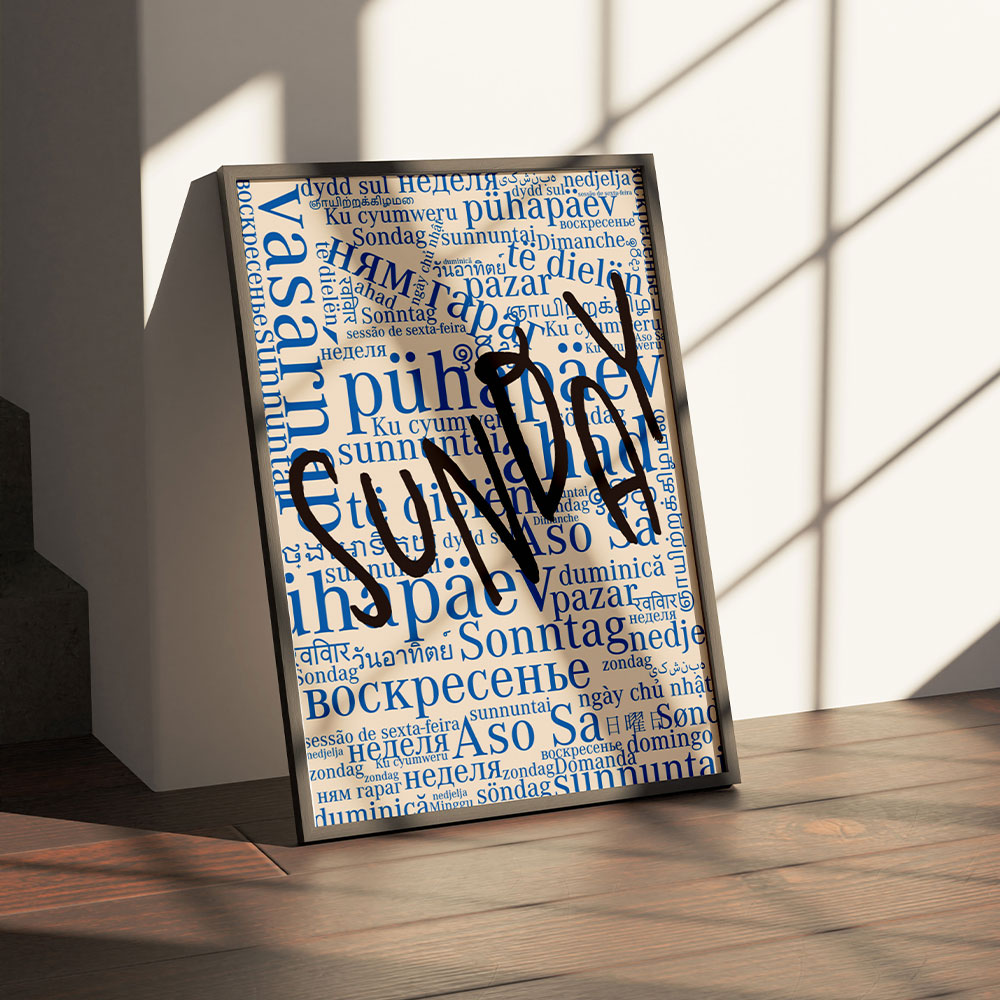 воскресенье
vasárnap
sunnuntai
dydd sul
неделя
nedjelja
ஞாயிற்றுக்கிழமை
dydd sul
sessão de sexta-feira
Ku cyumweru
pühapäev
воскресенье
Sondag
ngày chủ nhật
sunnuntai
Dimanche
të dielën
ням гараг
duminică
วันอาทิตย์
të dielën
pazar
रविवार
ahad
Sonntag
sessão de sexta-feira
Ku cyumweru
Aso Sa
Ku cyumweru
неделя
pühapäev
SUNDAY
söndag
sunnuntai
ahad
të dielën
Dimanche
dydd sul
Aso Sa
sunnuntai
ühapäev
duminică
pazar
रविवार
неделя
วันอาทิตย์
Sonntag
nedje
Sondag
zondag
воскресенье
ngày chủ nhật
sessão de sexta-feira
sunnuntai
Aso Sa
日曜日
Sønd
nedjelja
неделя
Ku cyumweru
воскресенье
domingo
zondag
zondag
неделя
zondag
Domanda
ням гараг
nedjelja
söndag
sunnuntai
duminică
Minggu